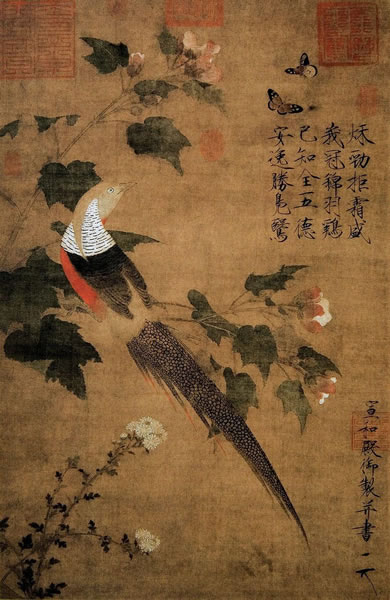 秋勁拒霜盛
峩冠錦羽鷄
已知全五德
安逸勝鳧鷖
宣和殿御製并書